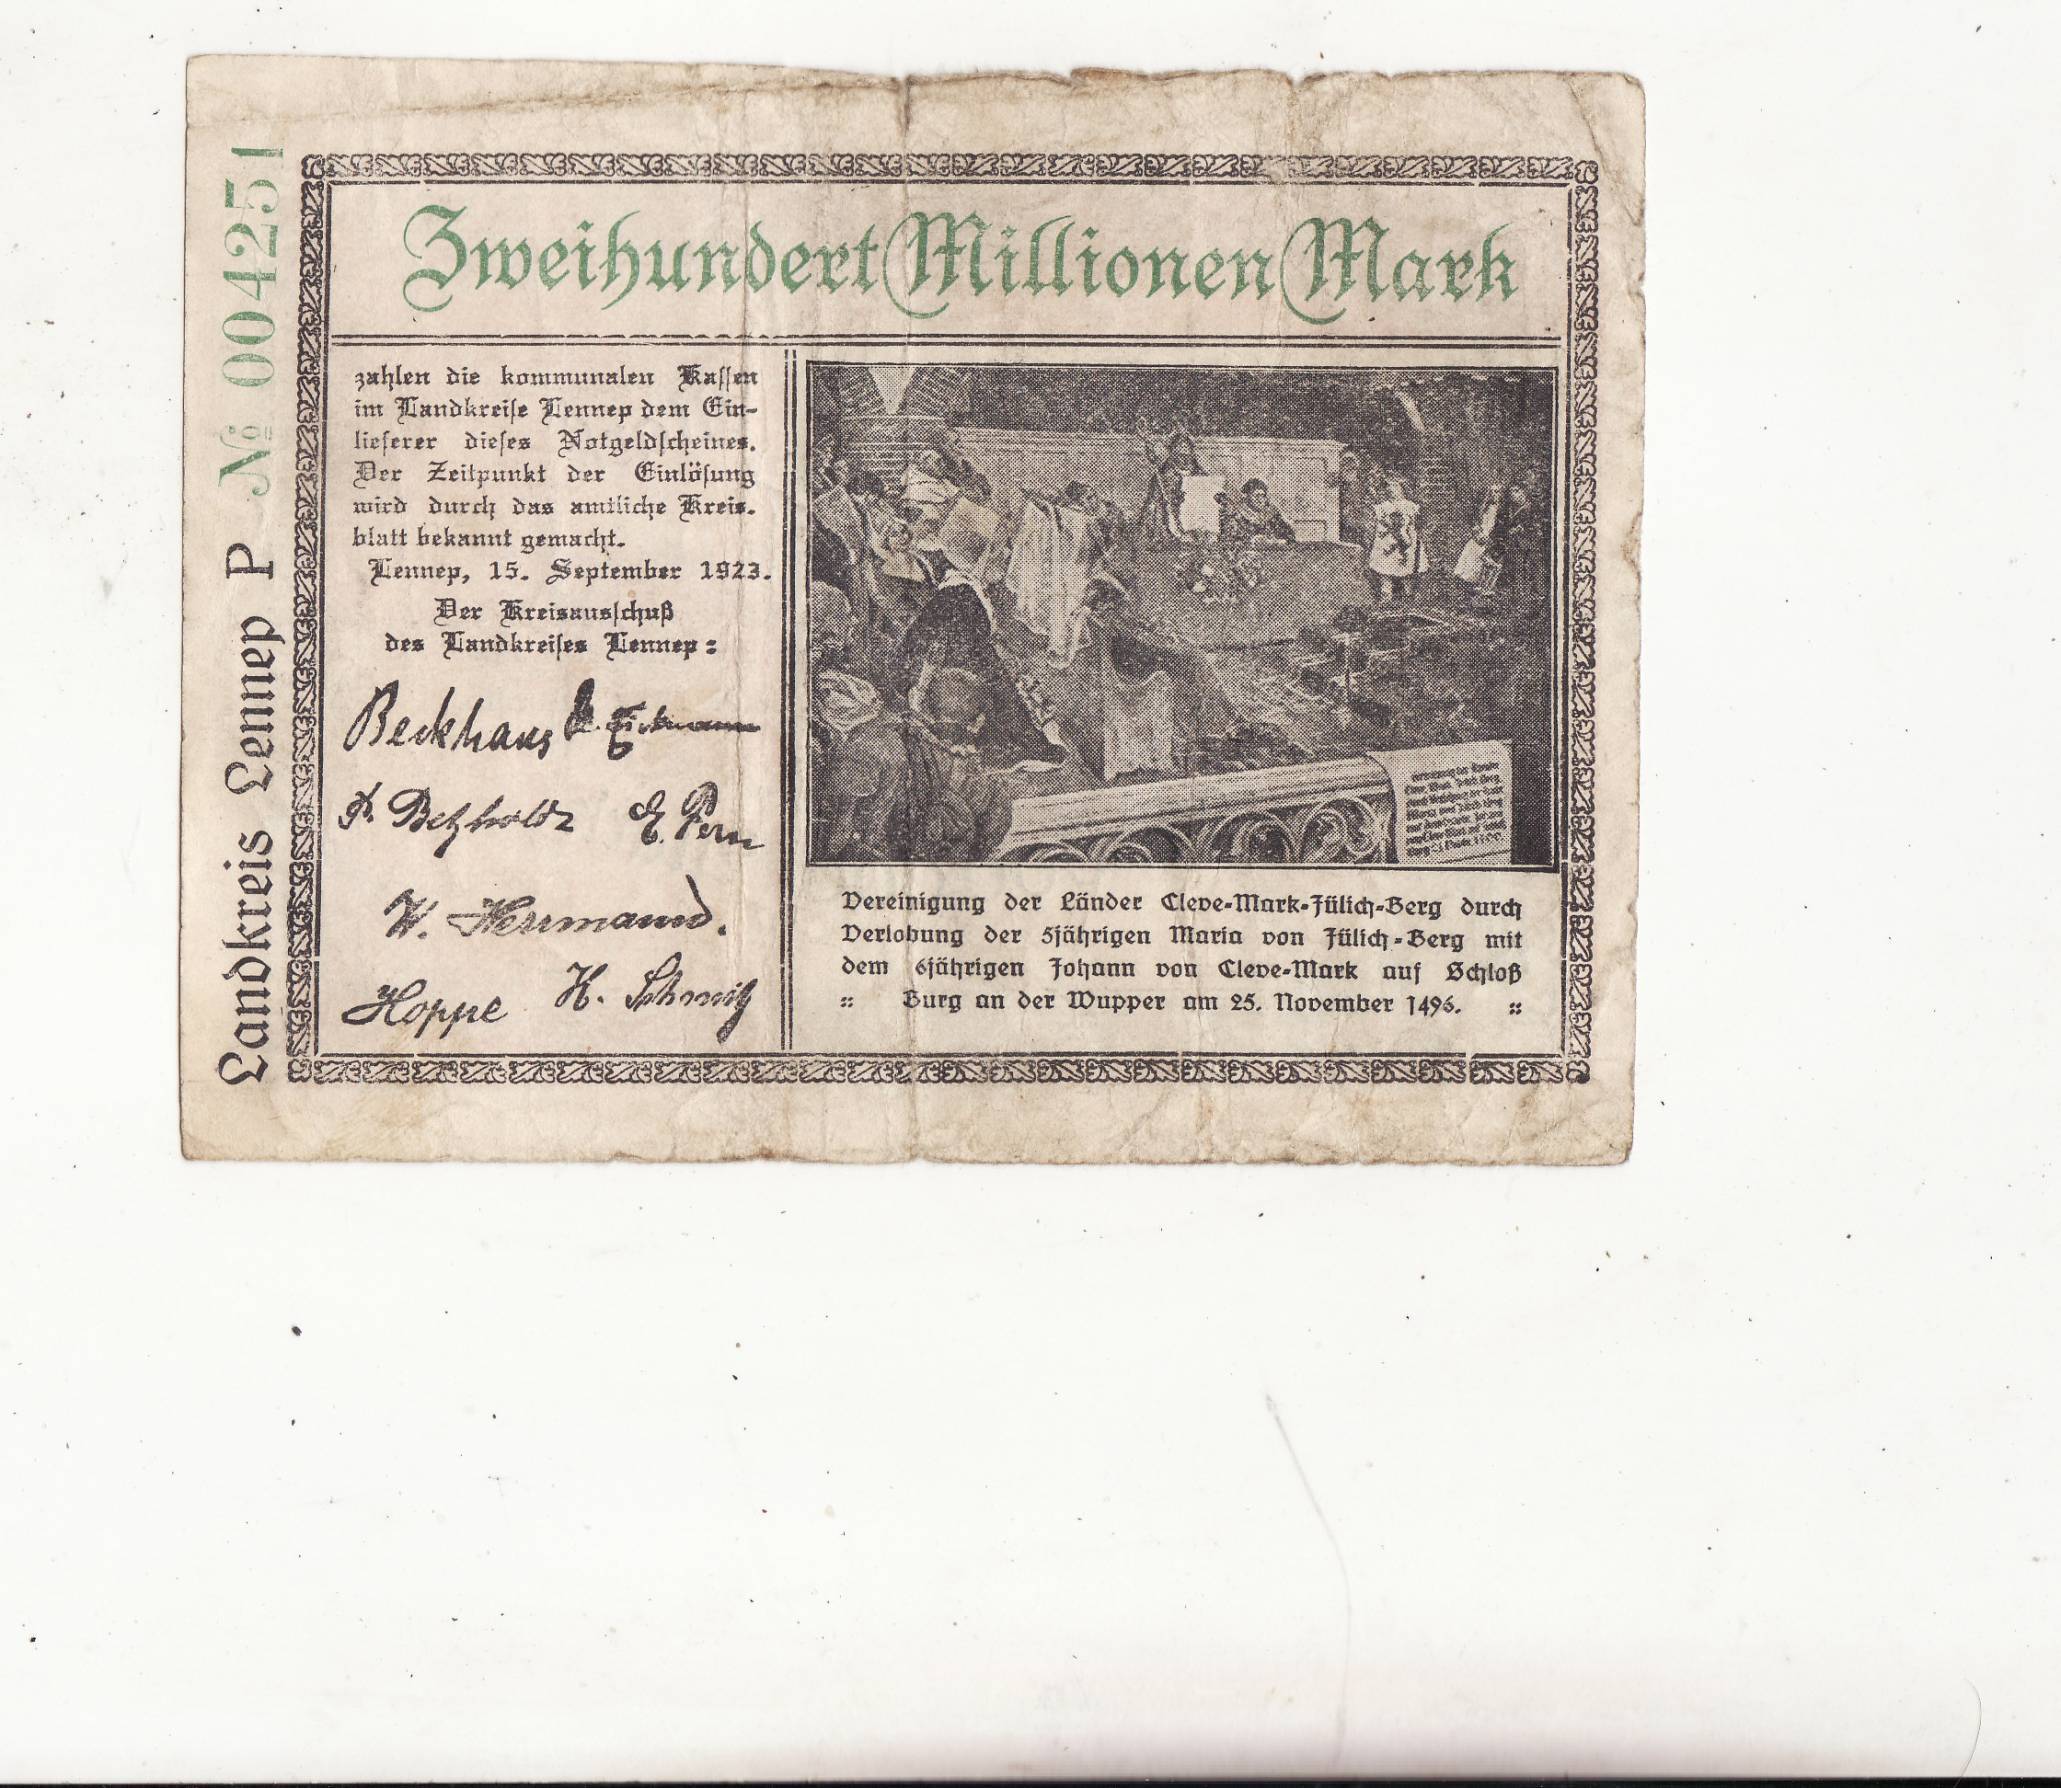 Landkreis Lennep P № 004251
Zweihundert Millionen Mark
zahlen die kommunalen Kassen
im Landkreise Lennep dem Ein-
lieferer dieses Notgeldscheines.
Der Zeitpunkt der Einlösung
wird durch das amtliche Kreis-
blatt bekannt gemacht.
Lennep, 15. September 1923.
Der Kreisausschuß
des Landkreises Lennep:
Beckhaus
W. Herrmann
Hoppe H. Schmitz
Vereinigung der Länder Cleve-Mark-Jülich-Berg durch
Verlobung der 5jährigen Maria von Jülich-Berg mit
dem 6jährigen Johann von Cleve-Mark auf Schloß
:: Burg an der Wupper am 25. November 1496. ::